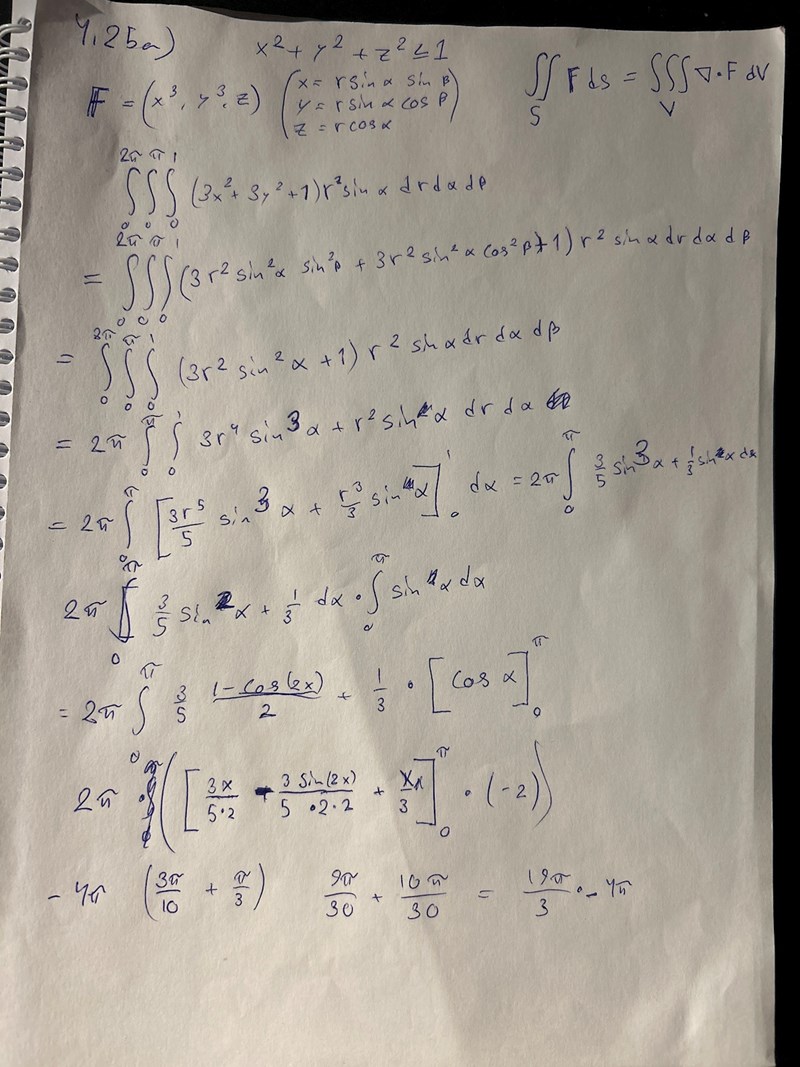 4.25a) x² + y² + z² ≤ 1
F = (x³, y³, z) (x = r sin α sin β
y = r sin α cos β
z = r cos α) ∬_S F ds = ∭_V ∇·F dV
∫_0^{2π} ∫_0^π ∫_0^1 (3x² + 3y² + 1) r² sin α dr dα dβ
= ∫_0^{2π} ∫_0^π ∫_0^1 (3r² sin² α sin² β + 3r² sin² α cos² β + 1) r² sin α dr dα dβ
= ∫_0^{2π} ∫_0^π ∫_0^1 (3r² sin² α + 1) r² sin α dr dα dβ
= 2π ∫_0^π ∫_0^1 3r⁴ sin³ α + r² sin α dr dα
= 2π ∫_0^π [3r⁵/5 sin³ α + r³/3 sin α]_0^1 dα = 2π ∫_0^π 3/5 sin³ α + 1/3 sin α dα
2π ∫_0^π 3/5 sin² α + 1/3 dα · ∫_0^π sin α dα
= 2π ∫_0^π 3/5 (1 - cos(2x))/2 + 1/3 · [cos α]_0^π
2π ([3x/(5·2) - 3 sin(2x)/(5·2·2) + x/3]_0^π · (-2))
- 4π (3π/10 + π/3) 9π/30 + 10π/30 = 19π/3 · - 4π